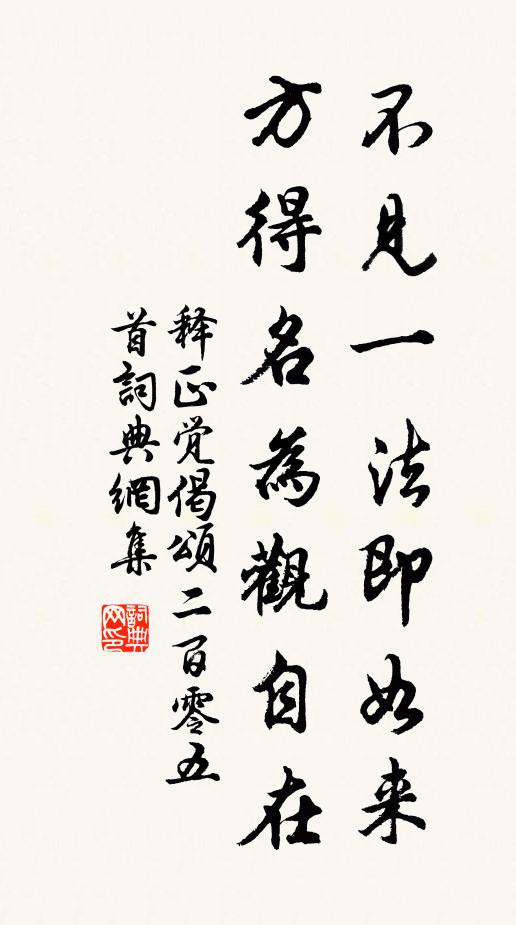 不見一法即如来
方得名為觀自在
释正觉偈頌二百零五
首詞典網集
詞典网印